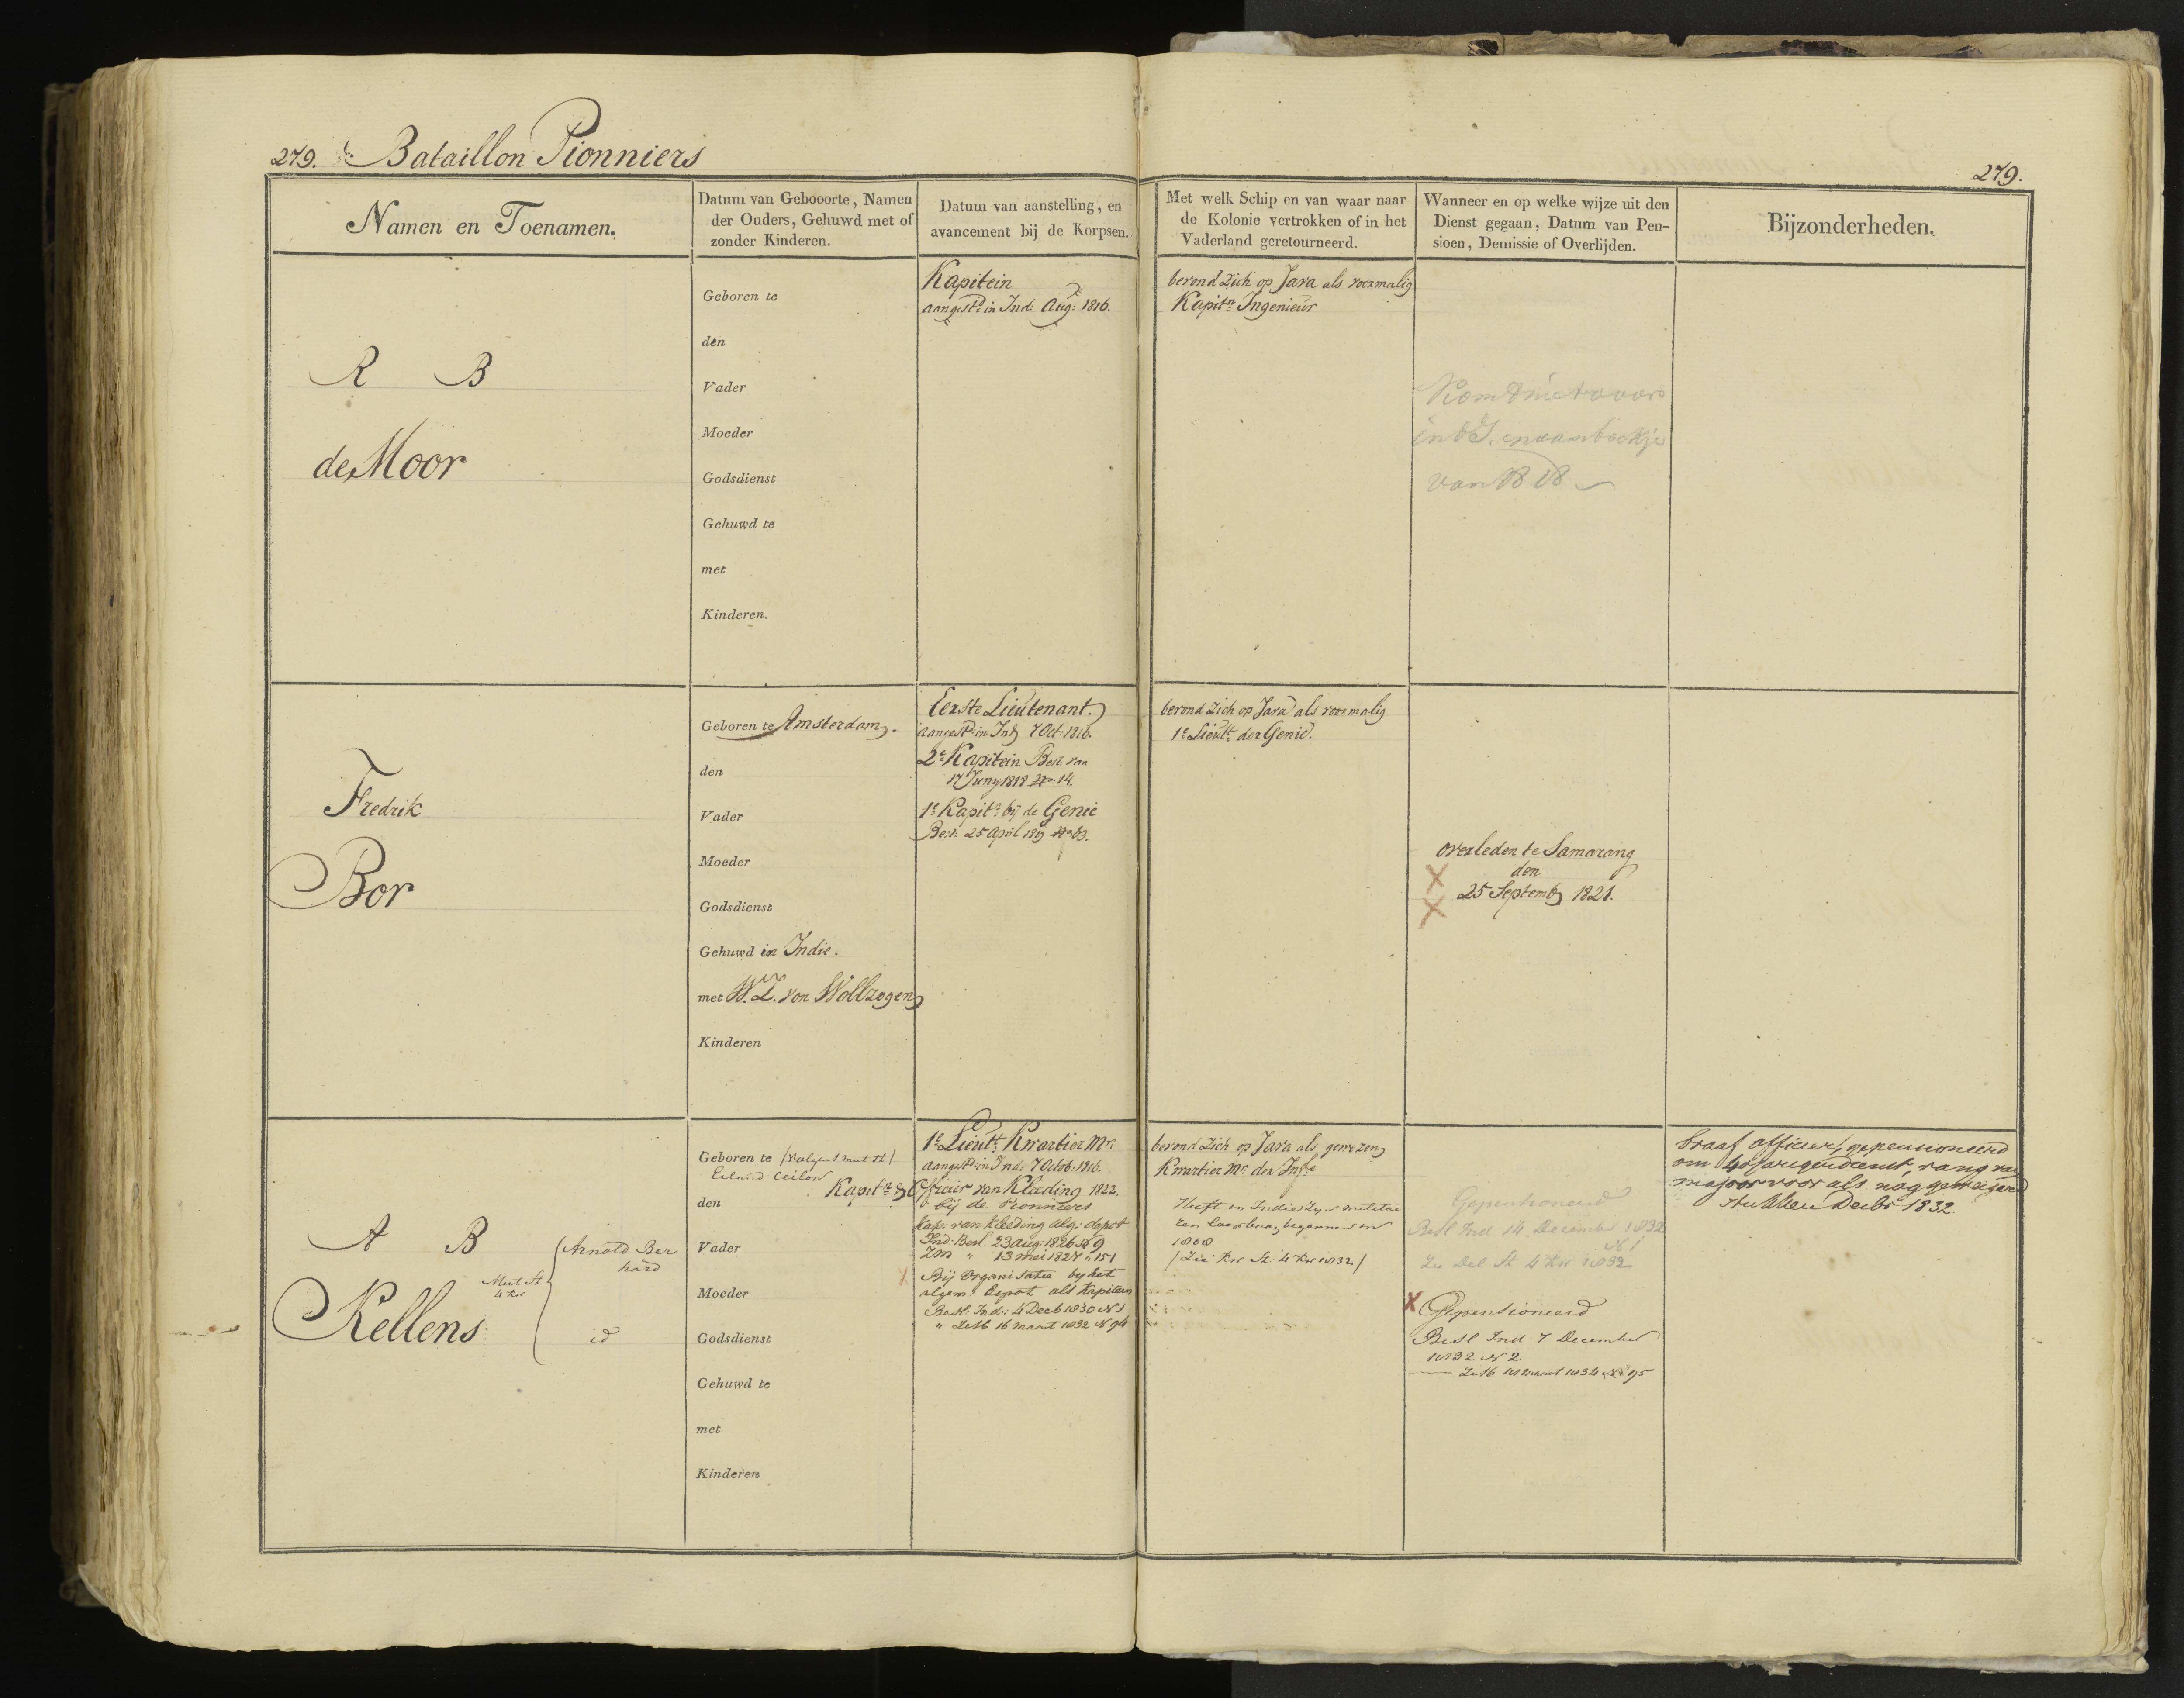 279. Bataillon Pionniers
279.
Namen en Toenamen.
Datum van Gebooorte, Namen
der Ouders, Gehuwd met of
zonder Kinderen.
Datum van aanstelling, en
avancement bij de Korpsen.
Met welk Schip en van waar naar
de Kolonie vertrokken of in het
Vaderland geretourneerd.
Wanneer en op welke wijze uit den
Dienst gegaan, Datum van Pen-
sioen, Demissie of Overlijden.
Bijzonderheden.
R B
de Moor
Geboren te
den
Vader
Moeder
Godsdienst
Gehuwd te
met
Kinderen.
Kapitein
aangest. in Ind: Aug: 1816.
bevond zich op Java als voormalig
Kapitn Ingenieur
Komt niet voor
in naamboekje
van 1818
Fredrik
Bor
Geboren te Amsterdam
den
Vader
Moeder
Godsdienst
Gehuwd in Indie.
met W. L. von Wollzogen
Kinderen
Eerste Lieutenant.
aangest. in Ind 7 Oct. 1816.
2e Kapitein Besl. van
17 Juny 1818 No 14.
1e Kapitn bij de Genie
Besl. 25 April 1819 No 63.
bevond zich op Java als voormalig
1e Lieutt der Genie.
overleden te Samarang
den
25 Septemb 1821.
A B
Kellens
Arnold Ber
hard
id
Geboren te (volgens
Eiland Ceilon
den
Vader
Moeder
Godsdienst
Gehuwd te
met
Kinderen
1e Lieutt Kwartier Mr.
aangest. in Ind: 7 Octob. 1816.
Kapitn & Officier van Kleeding 1822.
bij de Pionniers
Kap: van Kleeding alg: depot
Ind: Besl. 23 Aug: 1826 No 9
ZM " 13 Mei 1827 " 151
Bij Organisatie by het
algem: depot als Kapitein
Besl: Ind: 4 Decb 1830 N 1
" Zekb 16 maart 1832 N 94
bevond zich op Java als gewezen
Kwartier Mr. der Infie
Heeft in Indie zijne militai
ren loopbaan begonnen in
1808
Gepensioneerd
Besl Ind 14 December 1832
N 1
Gepensioneerd
Besl Ind 7 December
1832 N 2
braaf officier, gepensioneerd
om rang van
majoor voor als nog geweigerd
Decbr 1832.